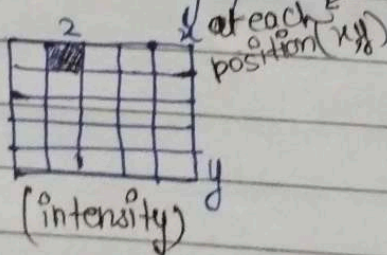 2
x at each
position (x,y)
y
(intensity)